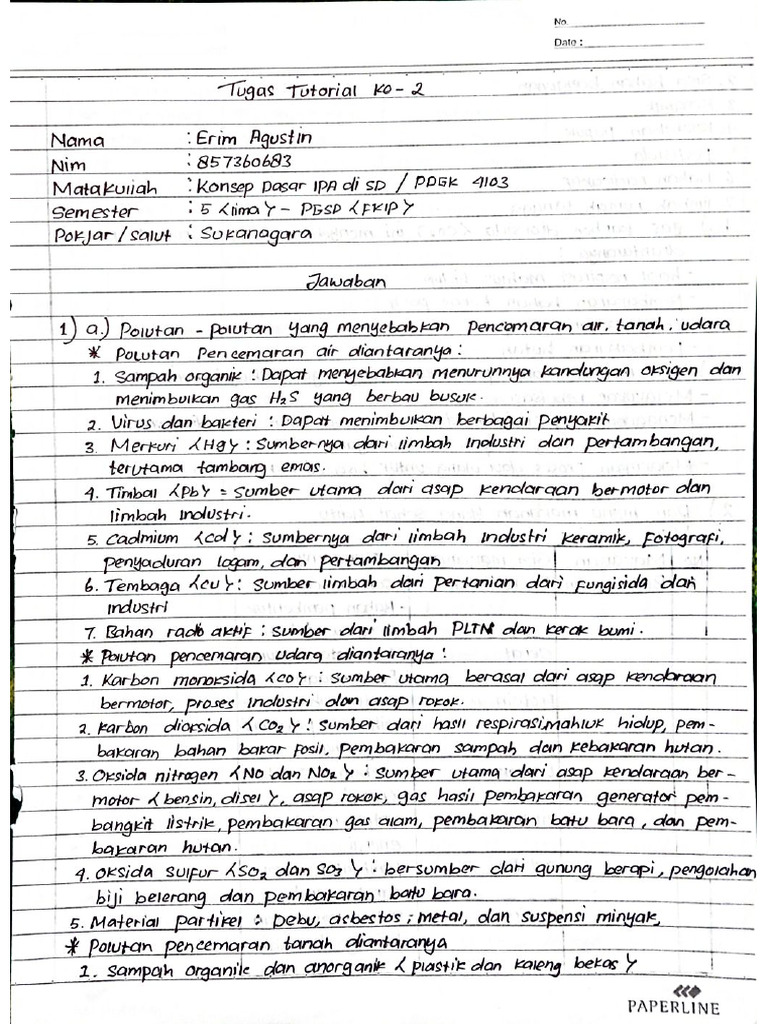 No.
Date :
Tugas Tutorial KO - 2
Nama : Erim Agustin
Nim : 857360683
Matakuliah : Konsep Dasar IPA di SD / PDGK 4103
Semester : 5 (lima) - PGSD (FKIP)
Pokjar / Salut : Sukanagara
Jawaban
1) a.) Polutan - polutan yang menyebabkan Pencemaran air, tanah, udara
* Polutan Pencemaran air diantaranya :
1. Sampah organik : Dapat menyebabkan menurunnya kandungan oksigen dan
menimbulkan gas H₂S yang berbau busuk.
2. Virus dan bakteri : Dapat menimbulkan berbagai Penyakit
3. Merkuri (Hg) : Sumbernya dari limbah Industri dan pertambangan,
terutama tambang emas.
4. Timbal (Pb) = Sumber utama dari asap kendaraan bermotor dan
limbah industri.
5. Cadmium (Cd) : Sumbernya dari limbah Industri keramik, Fotografi,
penyaduran logam, dan pertambangan
6. Tembaga (Cu) : Sumber limbah dari Pertanian dari Fungisida dan
industri
7. Bahan radio aktif : Sumber dari limbah PLTN dan kerak bumi.
* Polutan pencemaran Udara diantaranya :
1. Karbon monoksida (CO) : Sumber utama berasal dari asap kendaraan
bermotor, proses industri dan asap rokok.
2. Karbon dioksida (CO₂) : Sumber dari hasil respirasi mahluk hidup, pem-
bakaran bahan bakar fosil, pembakaran sampah dan kebakaran hutan.
3. Oksida nitrogen (NO dan NO₂) : Sumber utama dari asap kendaraan ber-
motor (bensin, disel), asap rokok, gas hasil pembakaran generator pem-
bangkit listrik, pembakaran gas alam, pembakaran batu bara, dan pem-
bakaran hutan.
4. Oksida Sulfur (SO₂ dan SO₃) : bersumber dari gunung berapi, pengolahan
biji belerang dan pembakaran batu bara.
5. Material partikel : Debu, asbestos, metal, dan suspensi minyak,
* Polutan pencemaran tanah diantaranya
1. Sampah organik dan anorganik (plastik dan kaleng bekas)
PAPERLINE